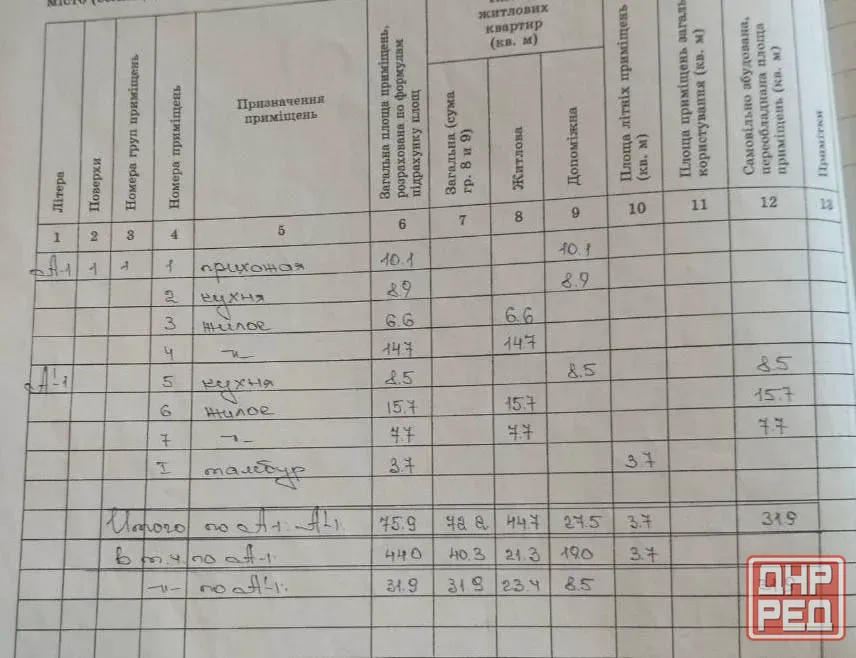 житлових
квартир
(кв. м)
Літера
Поверхи
Номера груп приміщень
Номера приміщень
Призначення
приміщень
Загальна площа приміщень,
розрахована по формулам
підрахунку площ
Загальна (сума
гр. 8 и 9)
Житлова
Допоміжна
Площа літніх приміщень
(кв. м)
Площа приміщень загаль
користування (кв. м)
Самовільно збудована,
переобладнана площа
приміщень (кв. м)
Примітки
1 2 3 4 5 6 7 8 9 10 11 12 13
А-1 1 1 1 прихожая 10.1 10.1
2 кухня 8.9 8.9
3 жилое 6.6 6.6
4 -"- 14.7 14.7
А'-1 5 кухня 8.5 8.5 8.5
6 жилое 15.7 15.7 15.7
7 -"- 7.7 7.7 7.7
I тамбур 3.7 3.7
Итого по А-1. А'-1. 75.9 72.2 44.7 27.5 3.7 31.9
в т.ч. по А-1. 44.0 40.3 21.3 19.0 3.7
-"- по А'-1. 31.9 31.9 23.4 8.5
ДНР
РЕД